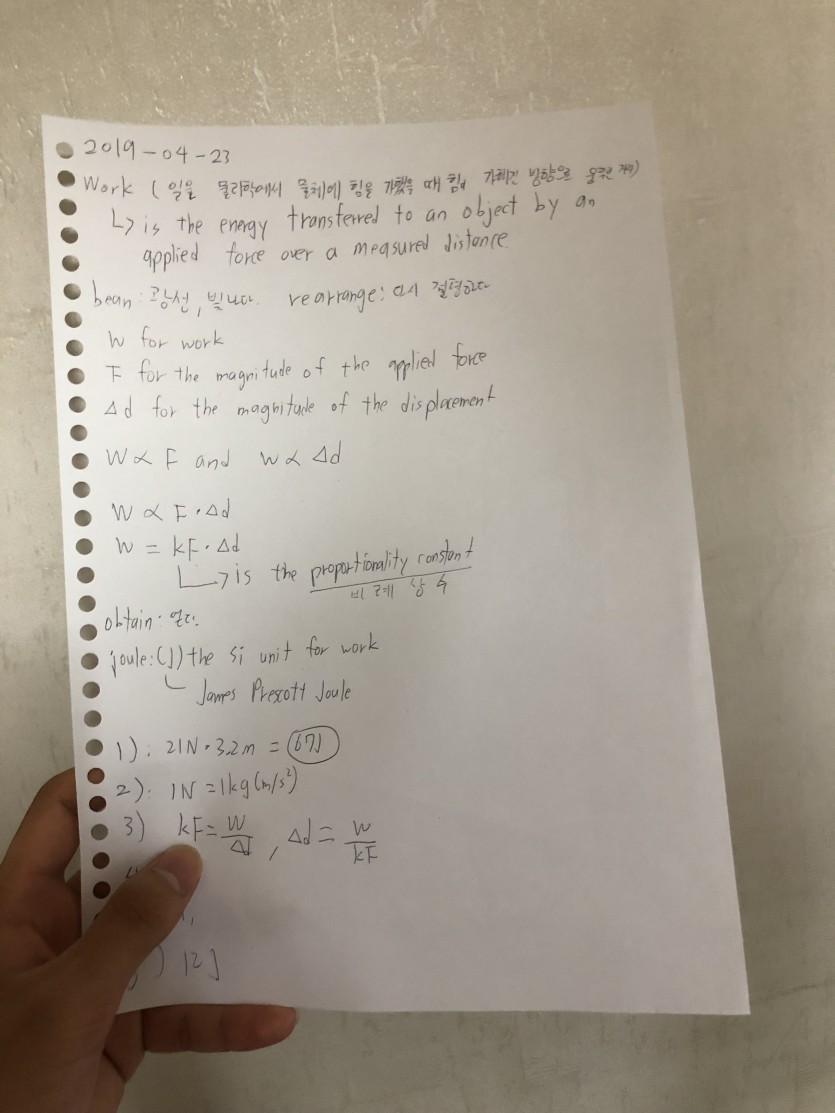 2019-04-23
Work ( 일을 물리학에서 물체에 힘을 가했을 때 힘이 가해진 방향으로
↳ is the energy transferred to an object by an
applied force over a measured distance.
bean: 광선, 빛나다. rearrange: 다시
W for work
F for the magnitude of the applied force
Δd for the magnitude of the displacement
W ∝ F and W ∝ Δd
W ∝ F · Δd
W = kF · Δd
↳ is the proportionality constant
비례 상수
obtain: 얻다.
joule: (J) the si unit for work
James Prescott Joule
1): 21N · 3.2m = 67J
2): 1N = 1kg(m/s²)
3) kF = W/Δd, Δd = W/kF
) 12J